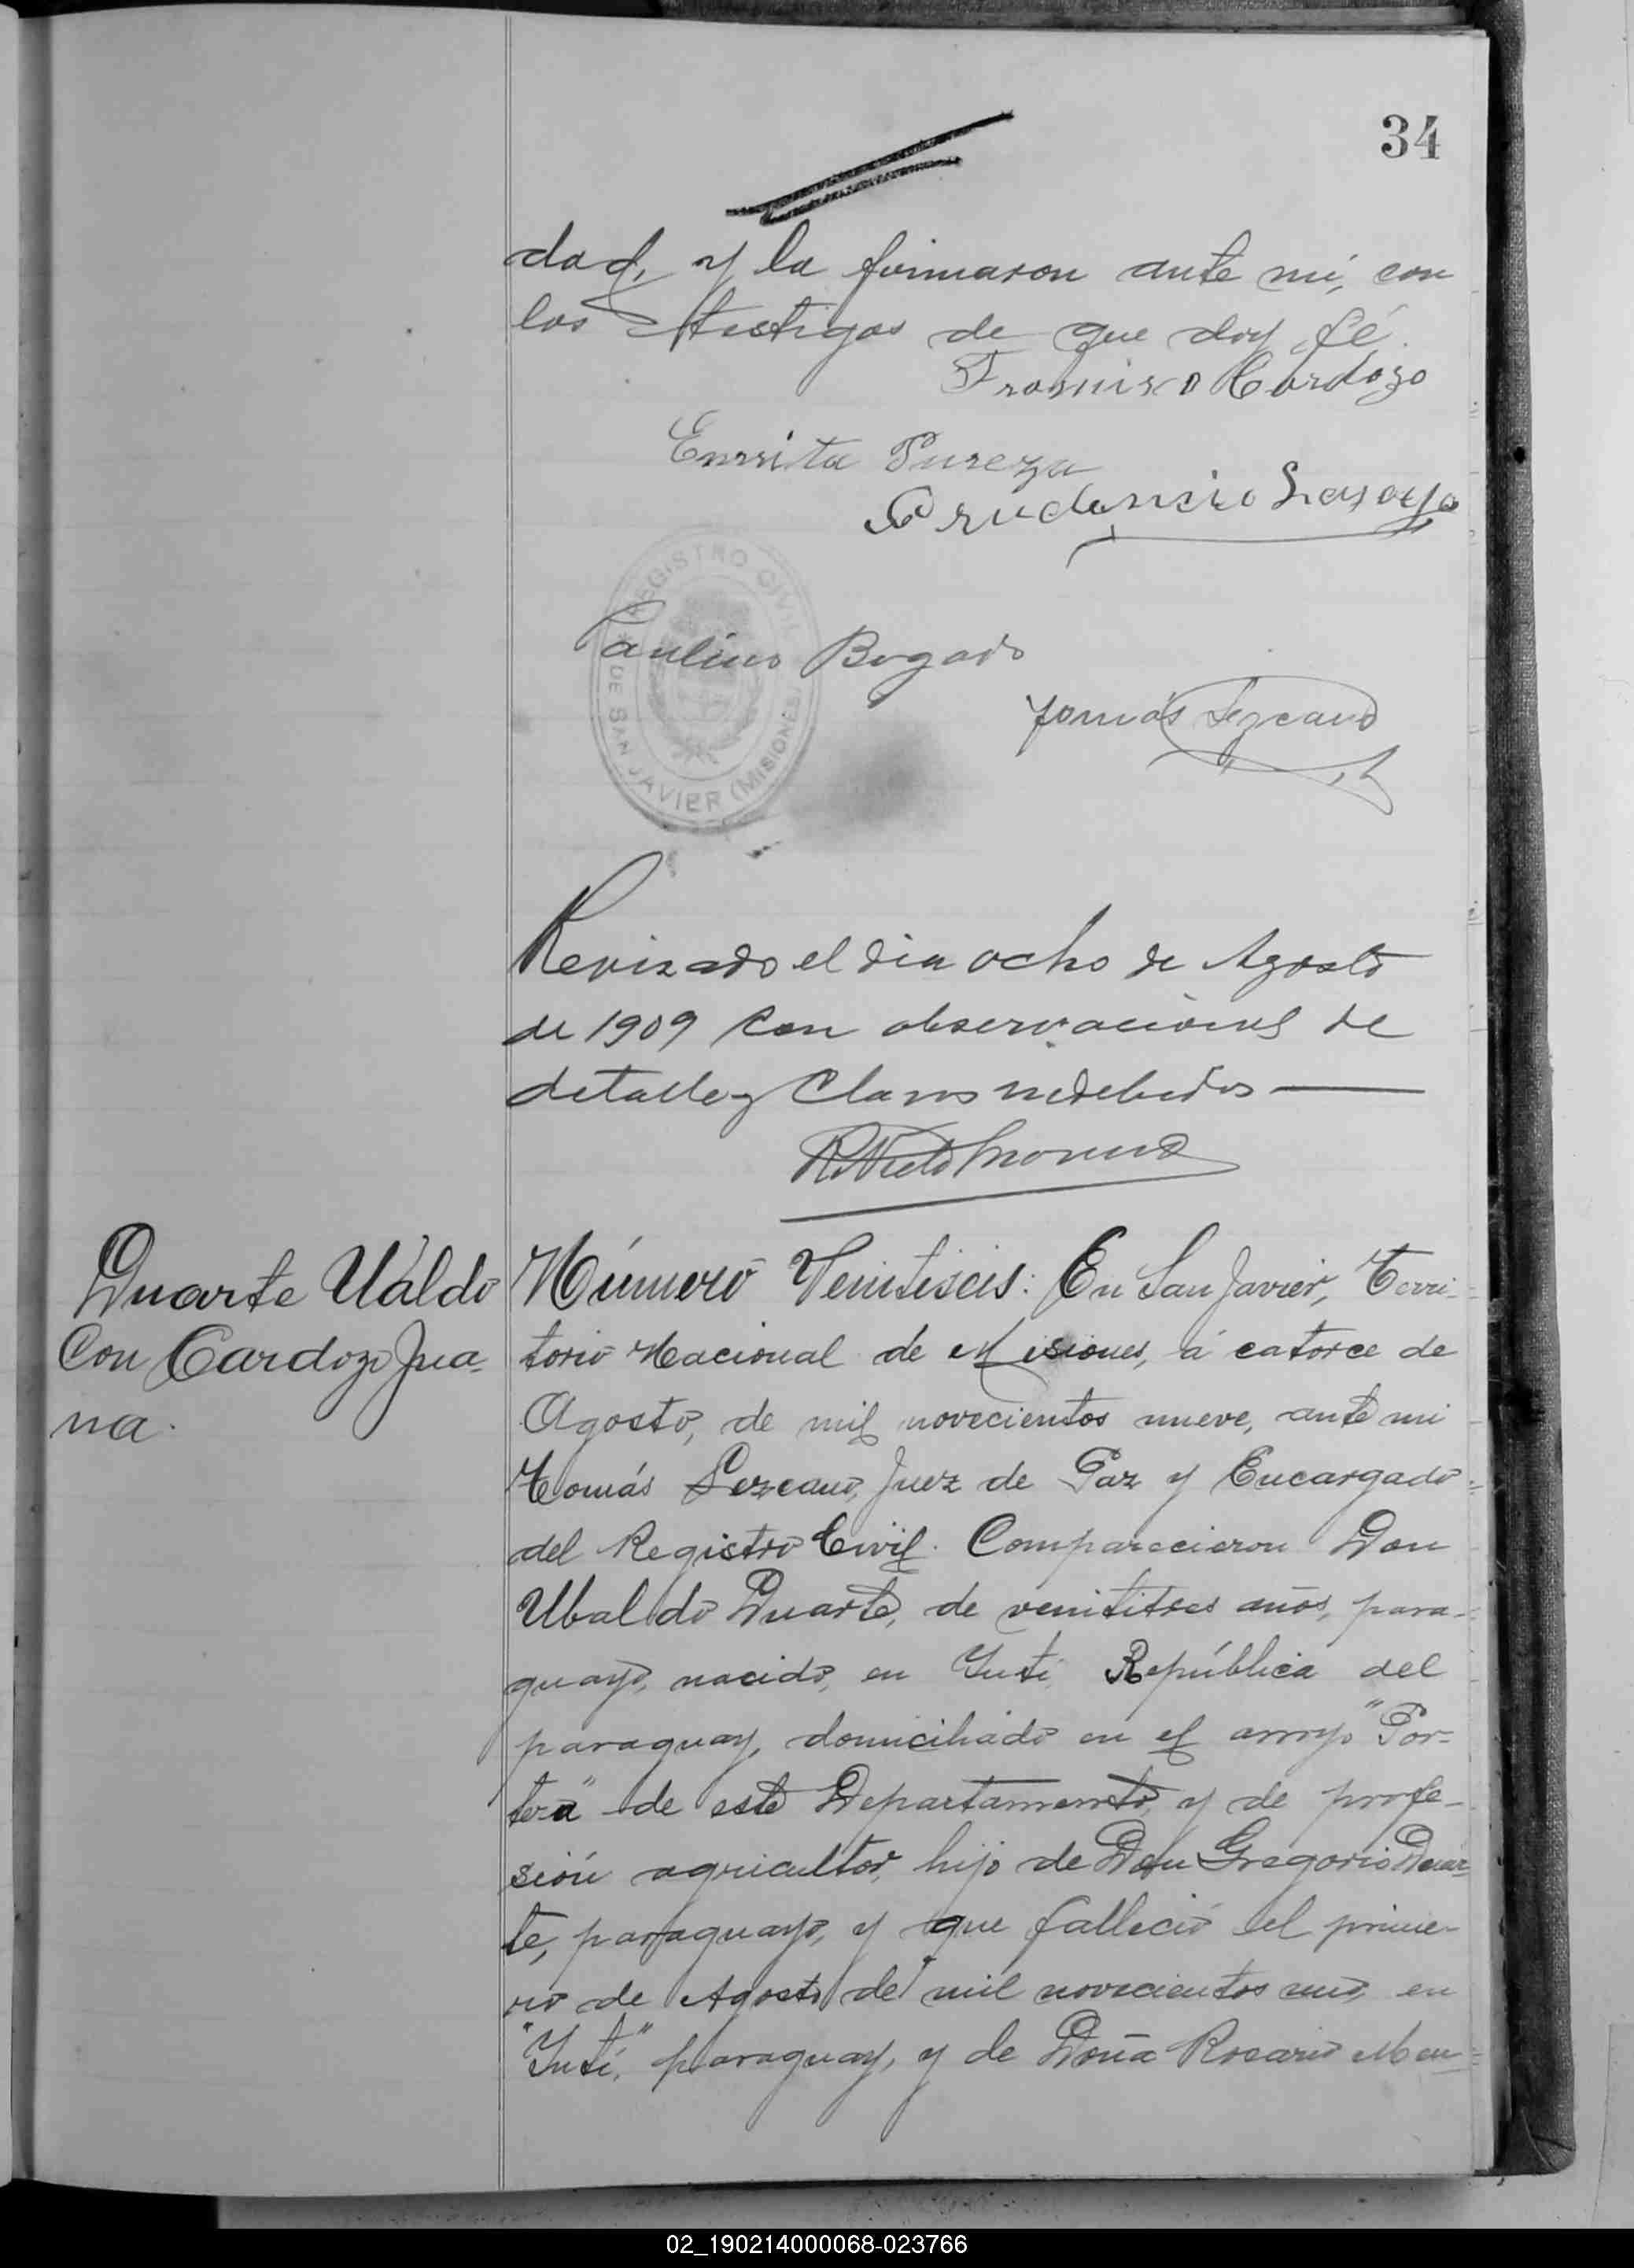 34
dad, y la firmaron ante mí, con
los testigos de que doy fé.
Cardozo
Pureza
Prudencio
REGISTRO CIVIL
DE SAN JAVIER (MISIONES)
Paulino Bogado
Tomás Lezcano
Revizado el dia ocho de Agosto
de 1909 con observaciones de
detalle y Claros indebidos
R. Nieto Moreno
Duarte Ubaldo
Con Cardozo Jua-
na.
Número Veintiseis: En San Javier, Terri-
torio Nacional de Misiones, á catorce de
Agosto, de mil novecientos nueve, ante mi
Tomás Lezcano, Juez de Paz y Encargado
del Registro Civil. Comparecieron Don
Ubaldo Duarte, de veintitres años, para-
guayo, nacido, en Yuti, República del
paraguay, domiciliado en el arroyo "Por-
tera" de este Departamento, y de profe-
sión agricultor, hijo de Don Gregorio Duar-
te, paraguayo, y que falleció el prime-
ro de Agosto de mil novecientos uno, en
"Yuti," paraguay, y de Doña Rosario Men-
02_190214000068-023766